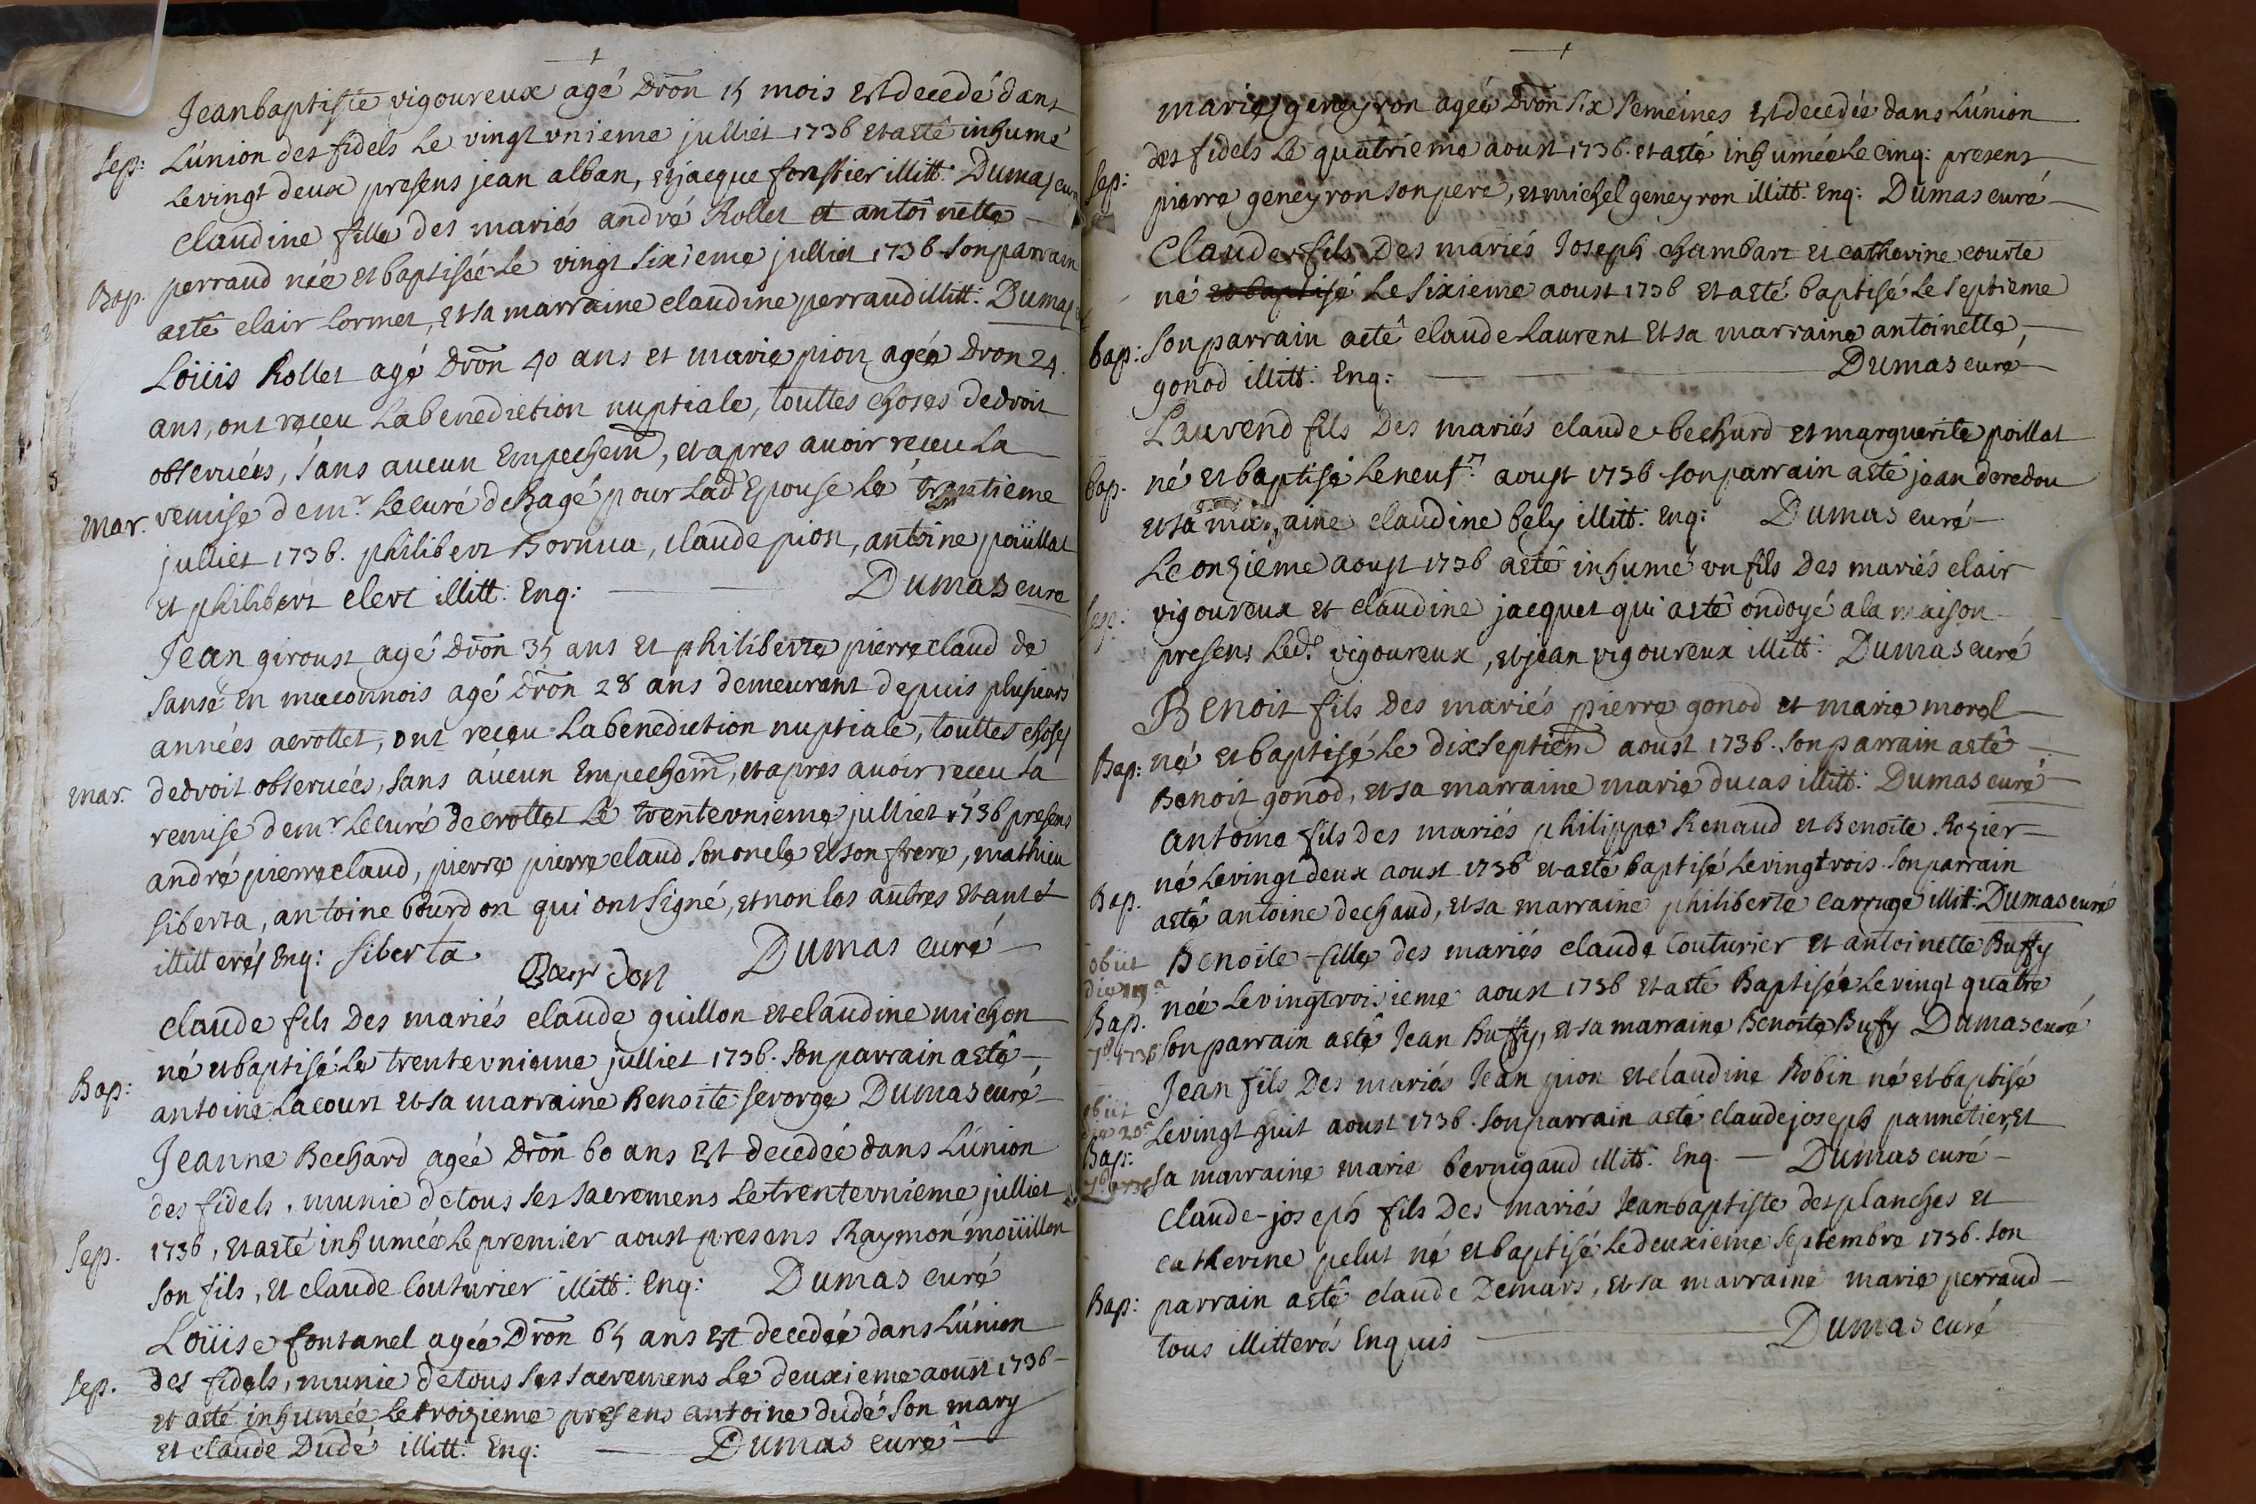 Jeanbaptiste vigoureux agé dron 15 mois est decedé dans
Sep: L'union des fidels le vingt vnieme julliet 1736 et a eté inhumé
le vingt deux presens jean alban, et jacque forestier illitt: Dumas curé
Claudine fille des mariés andré Rollet et antoinette
Bap. perraud née et baptisée le vingt sixieme julliet 1736 son parrain
a eté clair cormet, et sa marraine claudine perraud illitt: Dumas
Loüis Rollet agé dron 40 ans et marie pion agée dron 24
ans, ont reçeu la benediction nuptiale, touttes choses de droit
obseruées, sans aucun Empechem, et apres auoir reçeu la
Mar. remise de mr le curé de Bagé pour lad Epouse le trentieme
julliet 1736. philibert Bornua, claude pion, antoine poüillat
et philibert clert illitt: Enq: Dumas cure
Jean giroust agé dron 35 ans et philiberte pierreclaud de
sansé en maconnois agé dron 28 ans demeurant depuis plusieurs
années a crottet, ont reçeu la benediction nuptiale, touttes choses
mar. de droit obseruées, sans aucun Empechem, et apres auoir reçeu la
remise de mr le curé de crottet le trentevnieme julliet 1736 presens
andré pierreclaud, pierre pierreclaud son oncle et son frere, mathieu
siberta, antoine bourdon qui ont signé, et non les autres etant
illitterés Enq: siberta Bourdon Dumas curé
claude fils des mariés claude guillon et claudine michon
né et baptisé le trentevnieme julliet 1736. son parrain a eté
Bap: antoine Lacourt et sa marraine Benoite sevorge Dumas curé
Jeanne Bechard agée dron 60 ans est decedée dans L'union
des fidels, munie de tous ses sacremens le trentevnieme julliet
Sep. 1736, et a eté inhumée le premier aoust presens Raymon moüillon
son fils, et claude couturier illitt: Enq: Dumas curé
Loüise fontanel agée dron 65 ans est decedée dans L'union
Sep. des fidels, munie de tous ses sacremens le deuxieme aoust 1736
et a eté inhumée le troizieme presens antoine dudé son mary
et claude Dudé illitt: Enq: Dumas curé
marie geneyron agée dron six semeines est decedée dans L'union
des fidels le quatrieme aoust 1736. et a eté inhumée le cinq: presens
Sep: pierre geneyron son pere, et michel geneyron illitt: Enq: Dumas curé
Claude fils des mariés Joseph chambart et catherine courte
né et baptisé le sixieme aoust 1736 et a eté baptisé le septieme
bap: son parrain a eté claude Laurent et sa marraine antoinette
gonod illitt: Enq: Dumas curé
Laurend fils des mariés claude bechard et marguerite poillat
bap. né et baptisé le neuf aoust 1736 son parrain a eté jean deredou
et sa marraine claudine bely illitt: Enq: Dumas curé
Le onzieme aoust 1736 a eté inhumé vn fils des mariés clair
Sep: vigoureux et claudine jacquet qui a eté ondoyé a la maison
presens led. vigoureux, et jean vigoureux illitt: Dumas curé
Benoit fils des mariés pierre gonod et marie morel
Bap: né et baptisé le dixseptiem aoust 1736. son parrain a eté
Benoit gonod, et sa marraine marie ducas illitt: Dumas curé
antoine fils des mariés philippe Renaud et Benoite Rozier
né le vingt deux aoust 1736 et a eté baptisé le vingt trois. son parrain
Bap. a eté antoine dechaud, et sa marraine philiberte carruge illitt: Dumas curé
obiit Benoite fille des mariés claude couturier et antoinette Buffy
die née le vingt troisieme aoust 1736 et a eté Baptisée le vingt quatre
Bap. son parrain a eté Jean Buffy, et sa marraine Benoite Buffy Dumas curé
Jean fils des mariés Jean pion et claudine Robin né et baptisé
obiit die 20 le vingt huit aoust 1736. son parrain a eté claude joseph pannetier, et
Bap: sa marraine marie bernigaud illitt: Enq. Dumas curé
claude-joseph fils des mariés Jeanbaptiste desplanches et
catherine pelut né et baptisé le deuxieme septembre 1736. son
Bap: parrain a eté claude Demars, et sa marraine marie perraud
tous illitterés Enquis Dumas curé